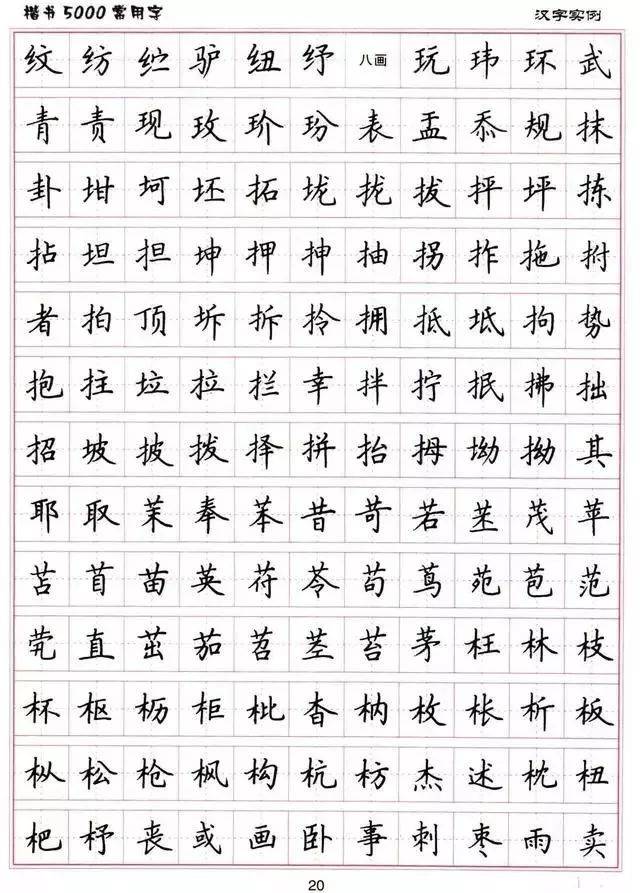 楷书5000常用字 汉字实例
纹 纺 纻 驴 纽 纾 八画 玩 玮 环 武
青 责 现 玫 玠 玢 表 盂 忝 规 抹
卦 坩 坷 坯 拓 垅 拢 拔 抨 坪 拣
拈 坦 担 坤 押 抻 抽 拐 拃 拖 拊
者 拍 顶 坼 拆 拎 拥 抵 坻 拘 势
抱 拄 垃 拉 拦 幸 拌 拧 抿 拂 拙
招 坡 披 拨 择 拼 抬 拇 坳 拗 其
耶 取 茉 奉 苯 昔 苛 若 茎 茂 苹
苫 苜 苗 英 苻 苓 苟 茑 苑 苞 范
茕 直 茁 茄 苕 茎 苔 茅 枉 林 枝
杯 枢 枥 柜 枇 杳 枘 枚 枨 析 板
枞 松 枪 枫 构 杭 枋 杰 述 枕 杻
杷 杼 丧 或 画 卧 事 刺 枣 雨 卖
20